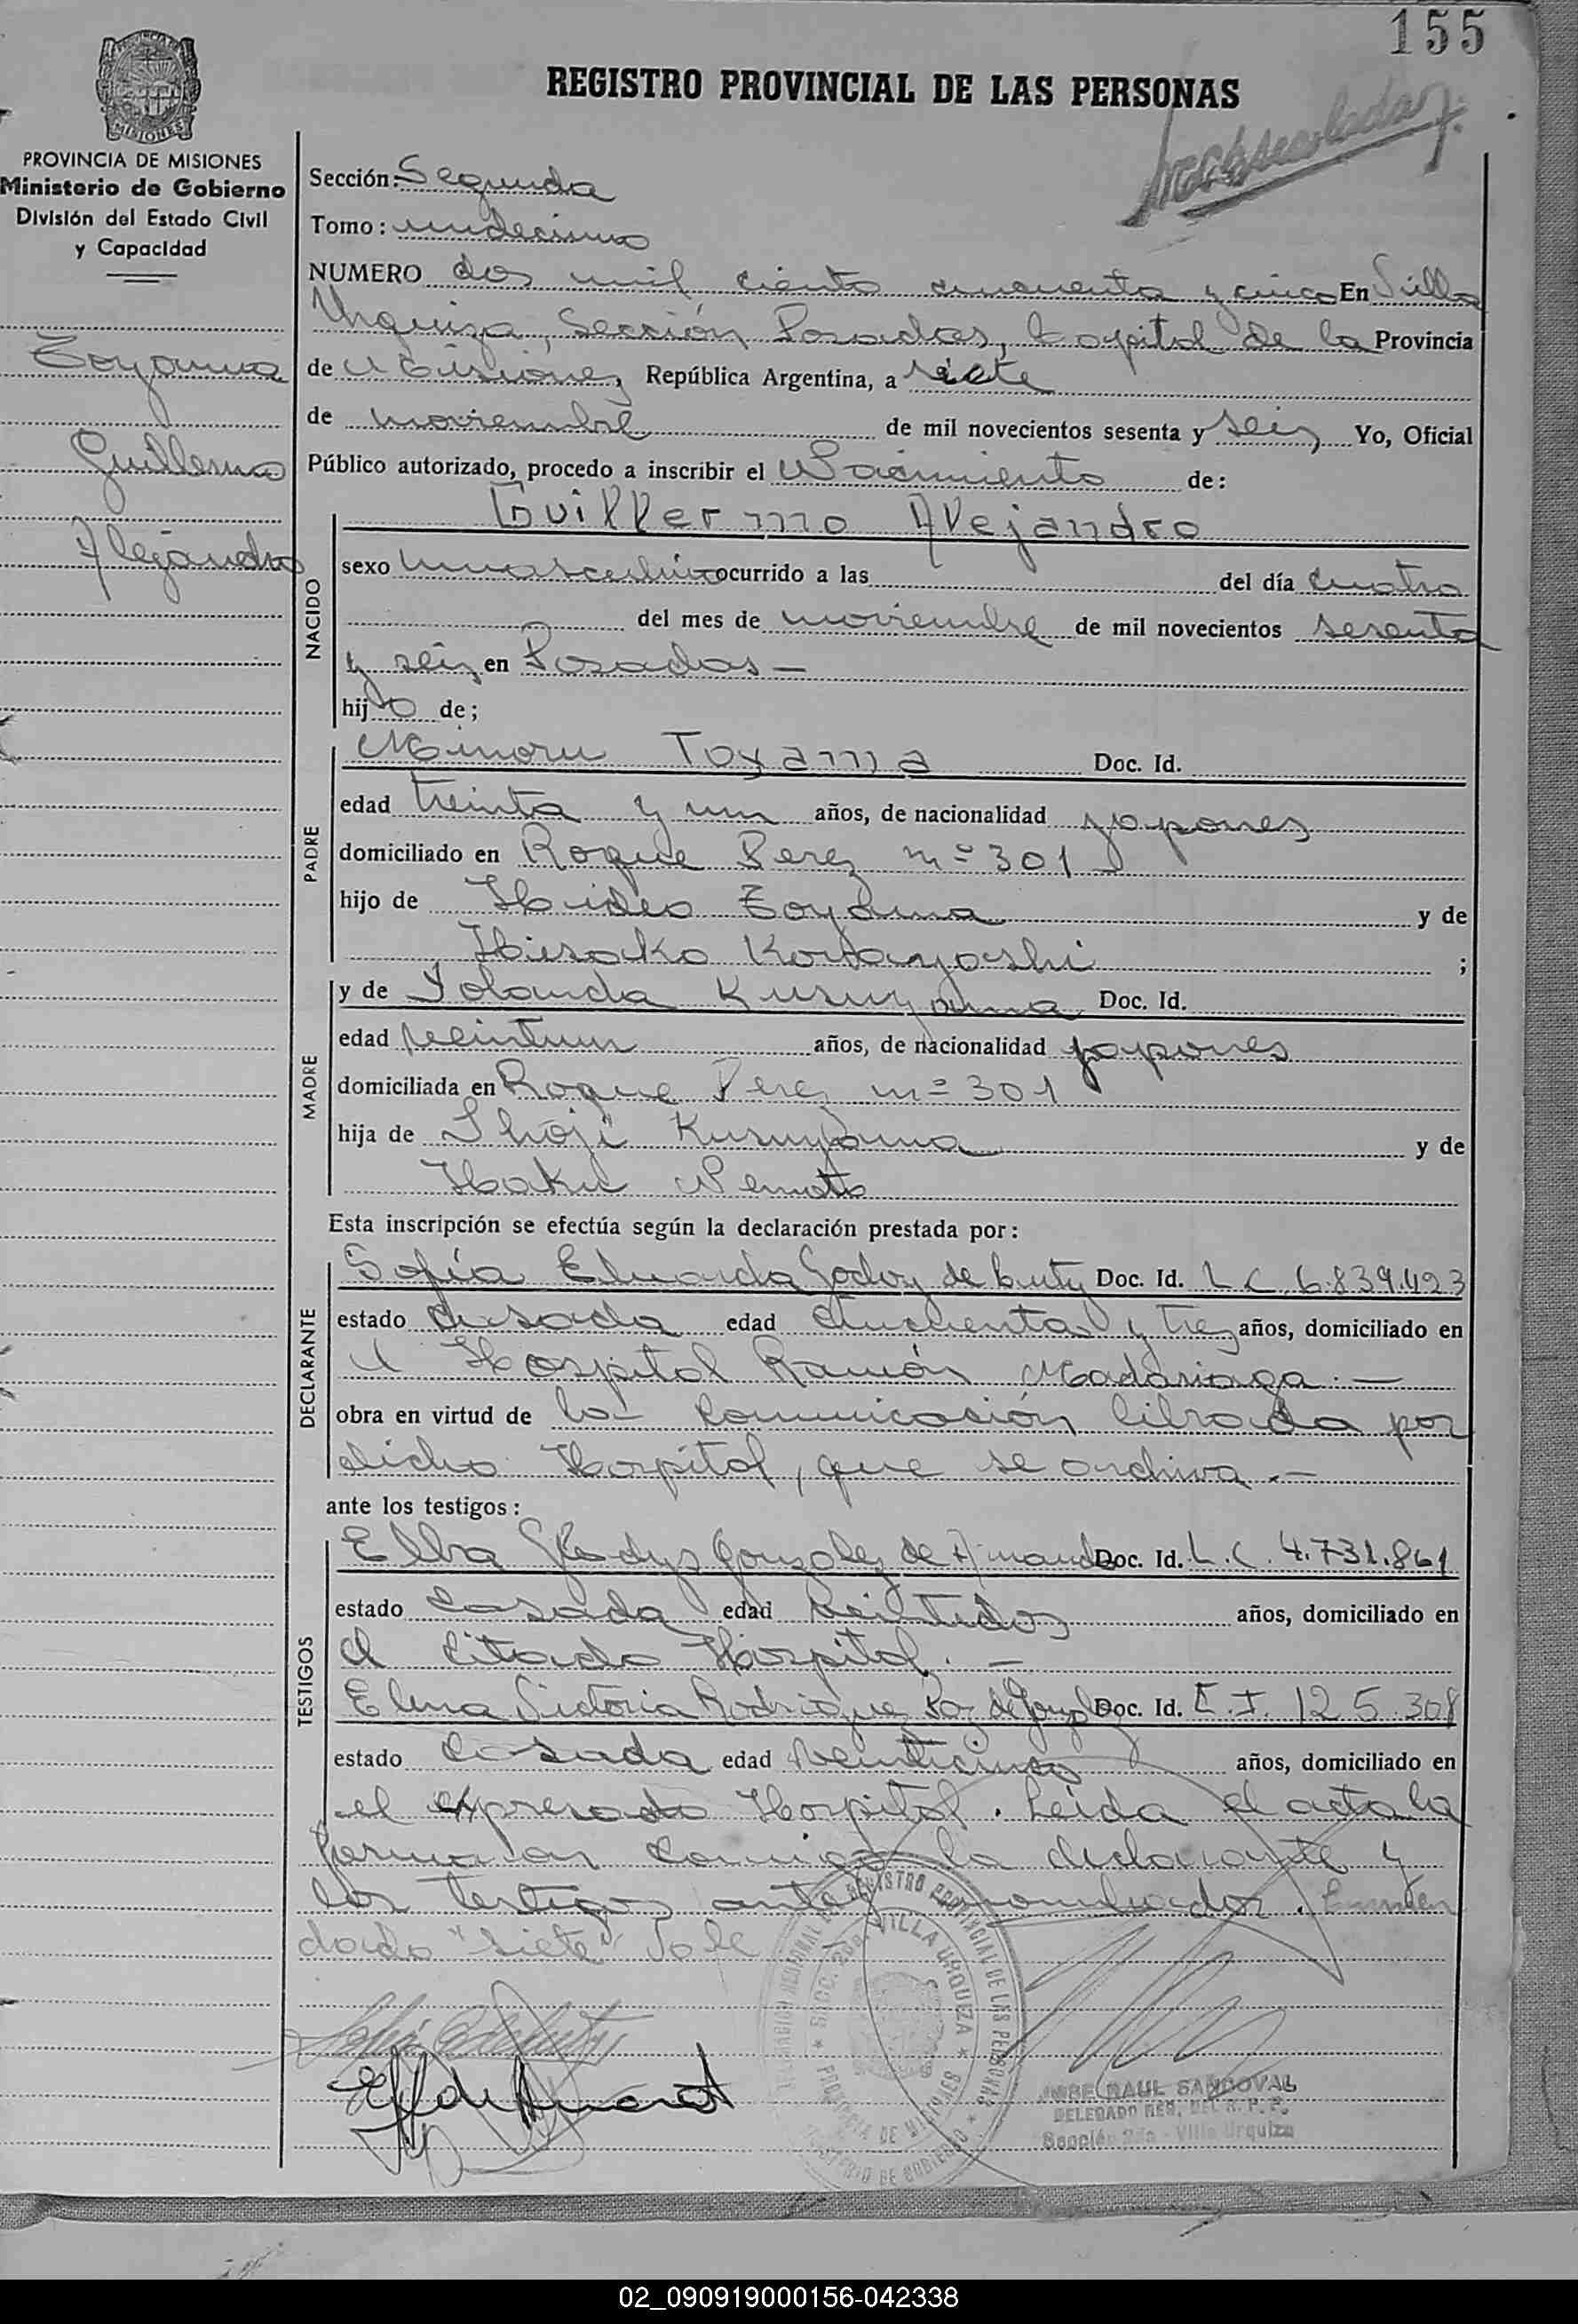 155
REGISTRO PROVINCIAL DE LAS PERSONAS
PROVINCIA DE MISIONES
Ministerio de Gobierno
División del Estado Civil
y Capacidad
Toyama
Guillermo
Alejandro
Sección: Segunda
Tomo: undecimo
NUMERO dos mil ciento cincuenta y cinco En Villa
Urquiza, Sección Posadas, Capital de la Provincia
de Misiones, República Argentina, a siete
de noviembre de mil novecientos sesenta y seis Yo, Oficial
Público autorizado, procedo a inscribir el Nacimiento de:
NACIDO
Guillermo Alejandro
sexo masculino ocurrido a las del día cuatro
del mes de noviembre de mil novecientos sesenta
y seis en Posadas -
hijo de;
PADRE
Minoru Toyama Doc. Id.
edad treinta y un años, de nacionalidad japones
domiciliado en Roque Perez nº 301
hijo de Hideo Toyama y de
Hisako Kowayashi ;
MADRE
y de Yolanda Kusuyama Doc. Id.
edad veintiun años, de nacionalidad japones
domiciliada en Roque Perez nº 301
hija de Shoji Kusuyama y de
Haku Nemoto
Esta inscripción se efectúa según la declaración prestada por:
DECLARANTE
Sofía Eduarda Godoy de Doc. Id. L C 6.839.423
estado casada edad cincuenta y tres años, domiciliado en
el Hospital Ramón Madariaga.-
obra en virtud de la comunicación librada por
dicho Hospital, que se archiva.-
ante los testigos:
TESTIGOS
Elba Gladys Gonzalez de Doc. Id. L.C. 4.731.861
estado casada edad veintidos años, domiciliado en
el citado Hospital.-
Elena Victoria Rodriguez Doc. Id. C.I. 125.308
estado casada edad veinticinco años, domiciliado en
el expresado Hospital. Leída el acta la
firman conmigo la declarante y
los testigos antes nombrados. Enmen
dado "siete" Vale
REGISTRO PROVINCIAL DE LAS PERSONAS
VILLA URQUIZA
PROVINCIA DE MISIONES
MINISTERIO DE GOBIERNO
RAUL SANDOVAL
DELEGADO REG. DEL R. P. P.
Sección 2da - Villa Urquiza
02_090919000156-042338